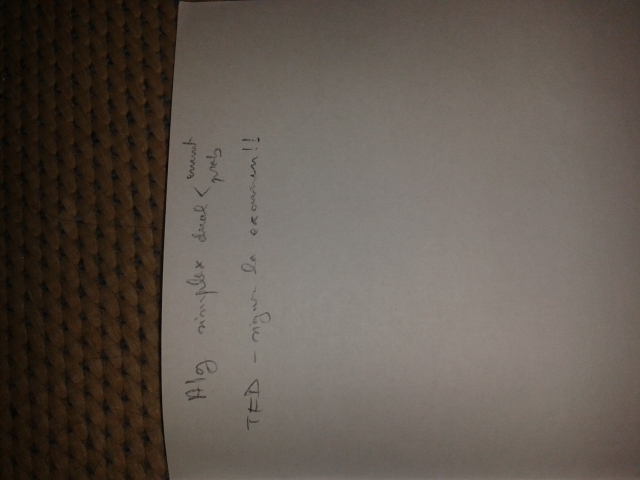 Alg simplex dual < enunt
prob
TFD - sigur la examen!!